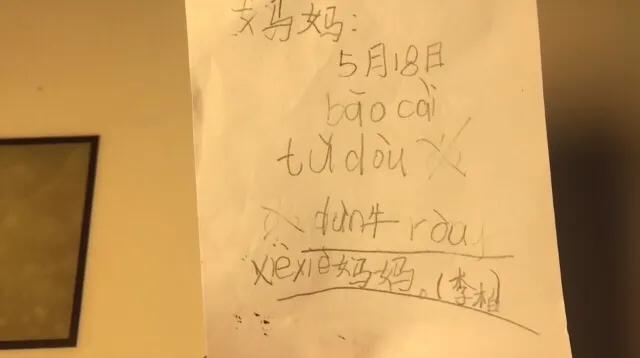 妈妈:
5月18日
bāo cài
tǔ dòu
dùn牛 ròu
xièxiè妈妈。(李柏)